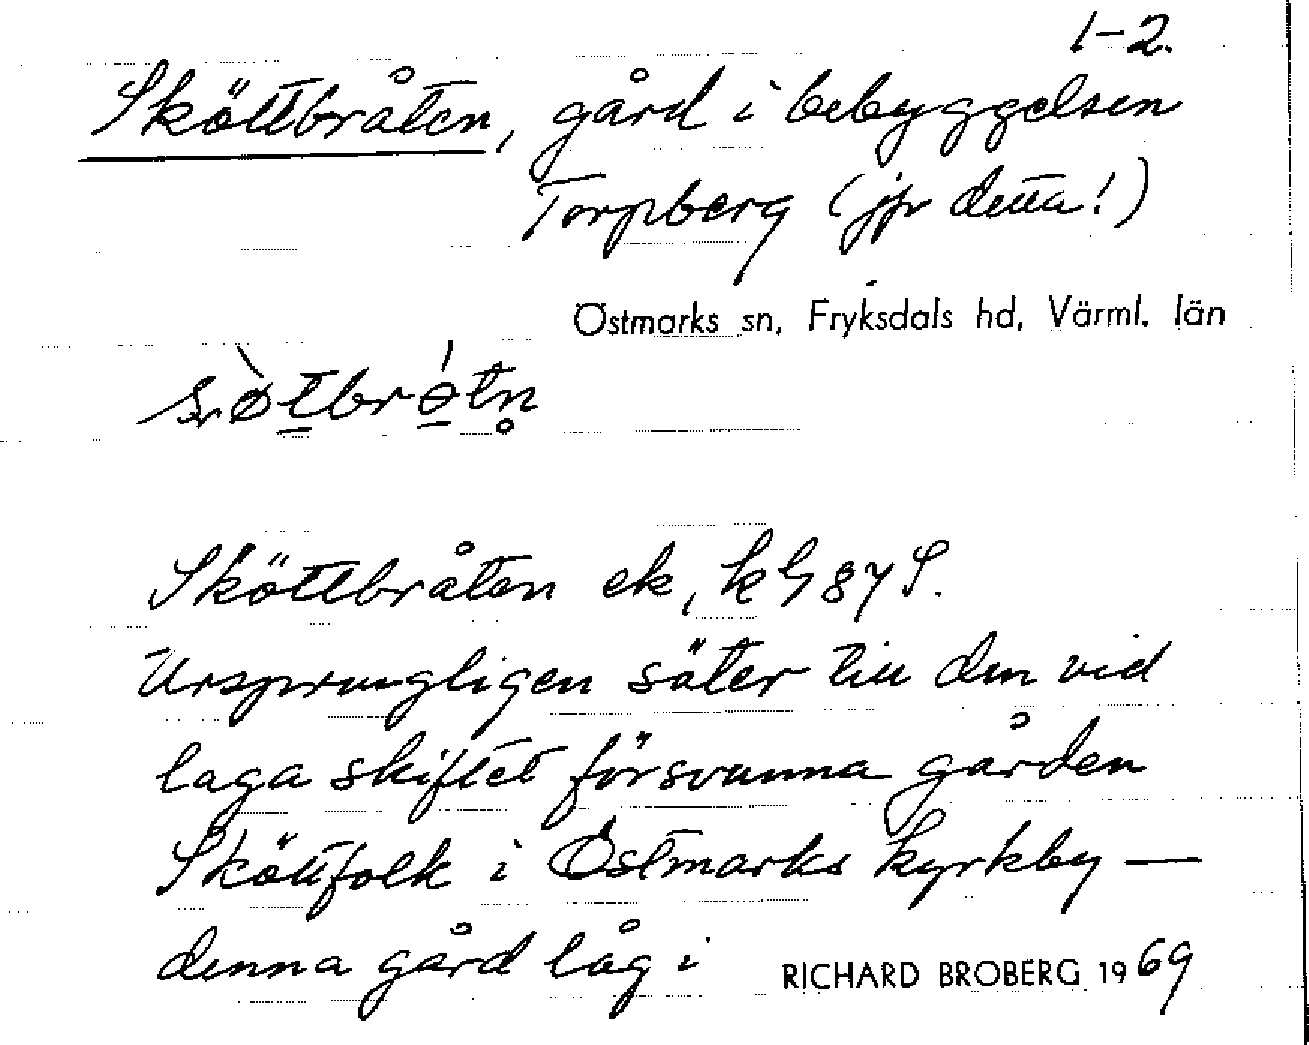 1-2.
Sköttbråten, gård i bebyggelsen
Torpberg (jfr detta!)
Östmarks sn, Fryksdals hd, Värml. län
Sköttbråten ek, kG 87 S.
Ursprungligen säter till den vid
laga skiftet försvunna gården
Sköttfolk i Östmarks kyrkby —
denna gård låg i
RICHARD BROBERG 1969